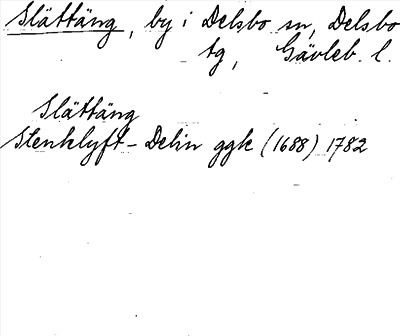 Slättäng, by i Delsbo sn, Delsbo
tg, Gävleb. l.
Slättäng
Stenklyft - Delin ggk (1688) 1782